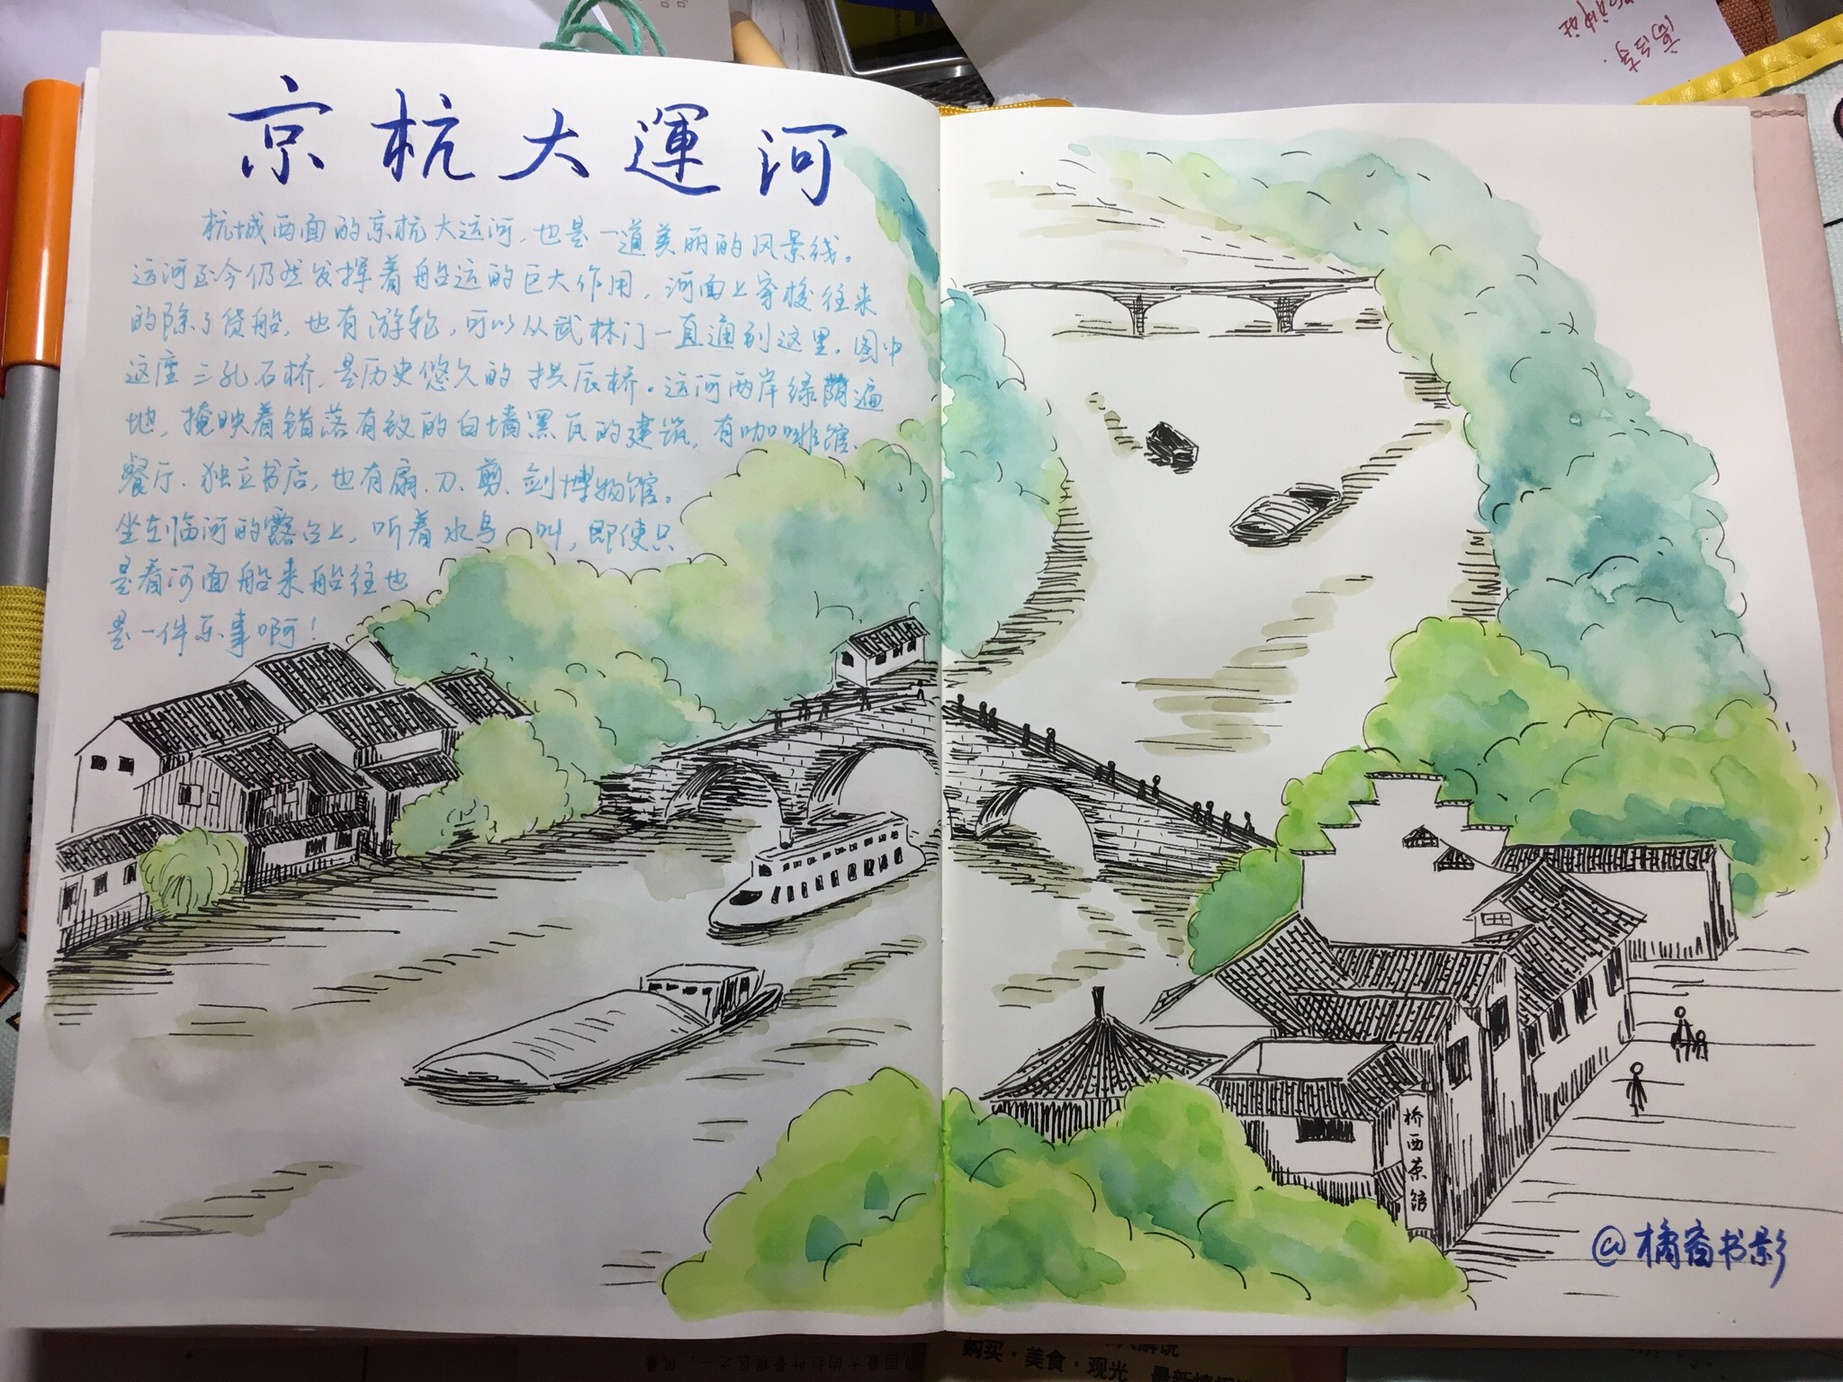 京杭大運河
杭城西面的京杭大运河，也是一道美丽的风景线。
运河至今仍然发挥着船运的巨大作用，河面上穿梭往来
的除了货船，也有游轮，可以从武林门一直通到这里。图中
这座三孔石桥，是历史悠久的拱宸桥。运河两岸绿荫遍
地，掩映着错落有致的白墙黑瓦的建筑，有咖啡馆、
餐厅、独立书店，也有扇、刀、剪、剑博物馆。
坐在临河的露台上，听着水鸟叫，即使只
是看河面船来船往也
是一件乐事啊！
桥西茶馆
@橘斋书影
购买·美食·观光